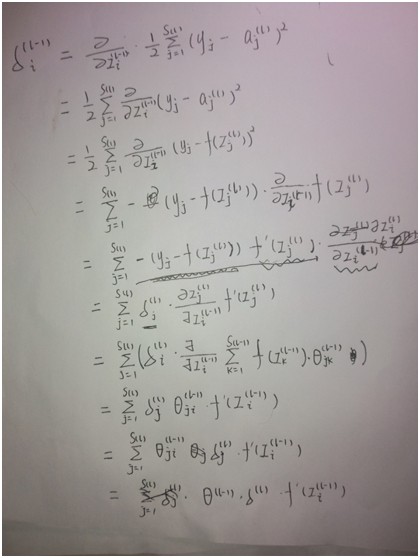 δ_i^{(l-1)} = ∂/∂I_i^{(l-1)} · 1/2 Σ_{j=1}^{S(l)} (y_j - a_j^{(l)})^2
= 1/2 Σ_{j=1}^{S(l)} ∂/∂I_i^{(l-1)} (y_j - a_j^{(l)})^2
= 1/2 Σ_{j=1}^{S(l)} ∂/∂I_i^{(l-1)} (y_j - f(I_j^{(l)}))^2
= Σ_{j=1}^{S(l)} - (y_j - f(I_j^{(l)})) · ∂/∂I_i^{(l-1)} f(I_j^{(l)})
= Σ_{j=1}^{S(l)} -(y_j - f(I_j^{(l)})) f'(I_j^{(l)}) · ∂I_j^{(l)}/∂I_i^{(l-1)}
= Σ_{j=1}^{S(l)} δ_j^{(l)} · ∂I_j^{(l)}/∂I_i^{(l-1)} f'(I_j^{(l)})
= Σ_{j=1}^{S(l)} (δ_i^{(l)} · ∂/∂I_i^{(l-1)} Σ_{k=1}^{S(l-1)} f(I_k^{(l-1)}) · θ_{jk}^{(l-1)})
= Σ_{j=1}^{S(l)} δ_j^{(l)} θ_{ji}^{(l-1)} · f'(I_i^{(l-1)})
= Σ_{j=1}^{S(l)} θ_{ji}^{(l-1)} δ_j^{(l)} · f'(I_i^{(l-1)})
= θ^{(l-1)} · δ^{(l)} · f'(I_i^{(l-1)})